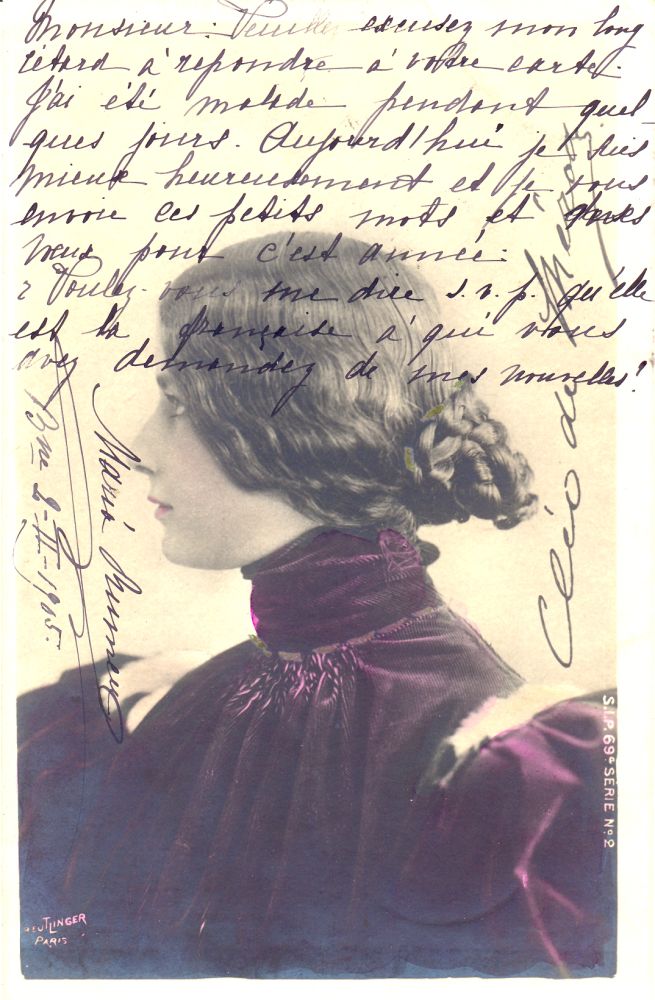 Monsieur: Veuillez excusez mon long
retard à repondre à votre carte.
J'ai été malade pendant quel-
ques jours. Aujourd'hui je suis
mieux heureusement et je vous
envoie ces petits mots et
vœux pour c'est année.
Voulez-vous me dire s.v.p. qu'elle
est la française à qui vous
avez demandez de mes nouvelles!
Maria
2-II-1905.
Cléo de Mérode
S.I.P. 69e SERIE No 2
REUTLINGER
PARIS